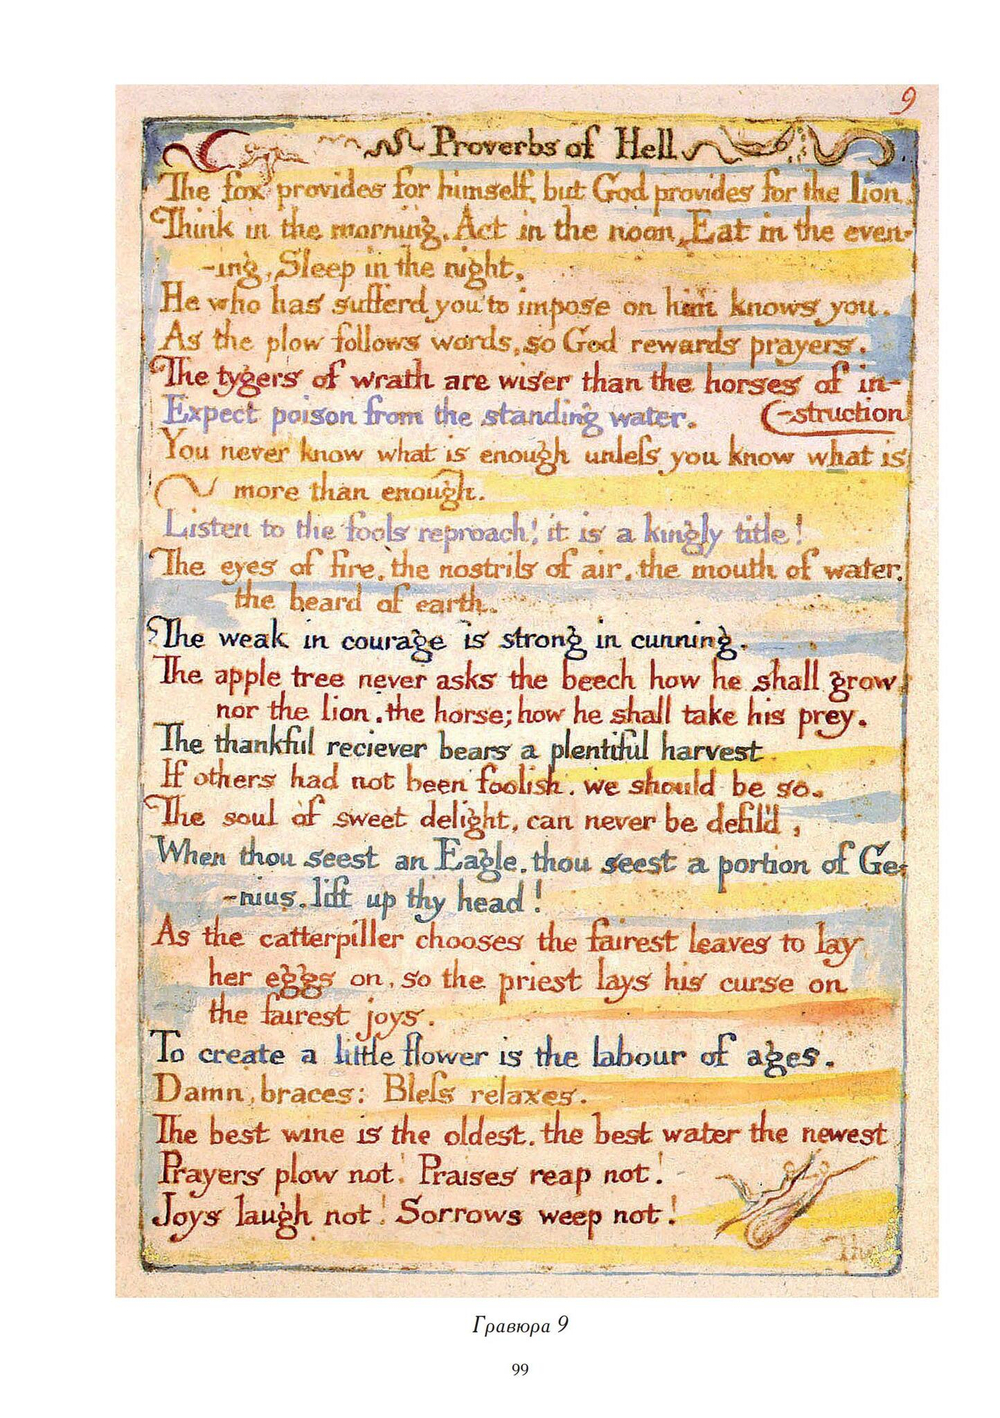 9
Proverbs of Hell
The fox provides for himself, but God provides for the lion.
Think in the morning, Act in the noon, Eat in the even-
-ing, Sleep in the night.
He who has sufferd you to impose on him knows you.
As the plow follows words, so God rewards prayers.
The tygers of wrath are wiser than the horses of in-
-struction
Expect poison from the standing water.
You never know what is enough unless you know what is
more than enough.
Listen to the fools reproach! it is a kingly title!
The eyes of fire, the nostrils of air, the mouth of water,
the beard of earth.
The weak in courage is strong in cunning.
The apple tree never asks the beech how he shall grow,
nor the lion, the horse; how he shall take his prey.
The thankful reciever bears a plentiful harvest
If others had not been foolish. we should be so.
The soul of sweet delight, can never be defil'd,
When thou seest an Eagle, thou seest a portion of Ge-
-nius. lift up thy head!
As the catterpiller chooses the fairest leaves to lay
her eggs on, so the priest lays his curse on
the fairest joys.
To create a little flower is the labour of ages.
Damn, braces: Bless relaxes.
The best wine is the oldest, the best water the newest
Prayers plow not! Praises reap not!
Joys laugh not! Sorrows weep not!
The
Гравюра 9
99